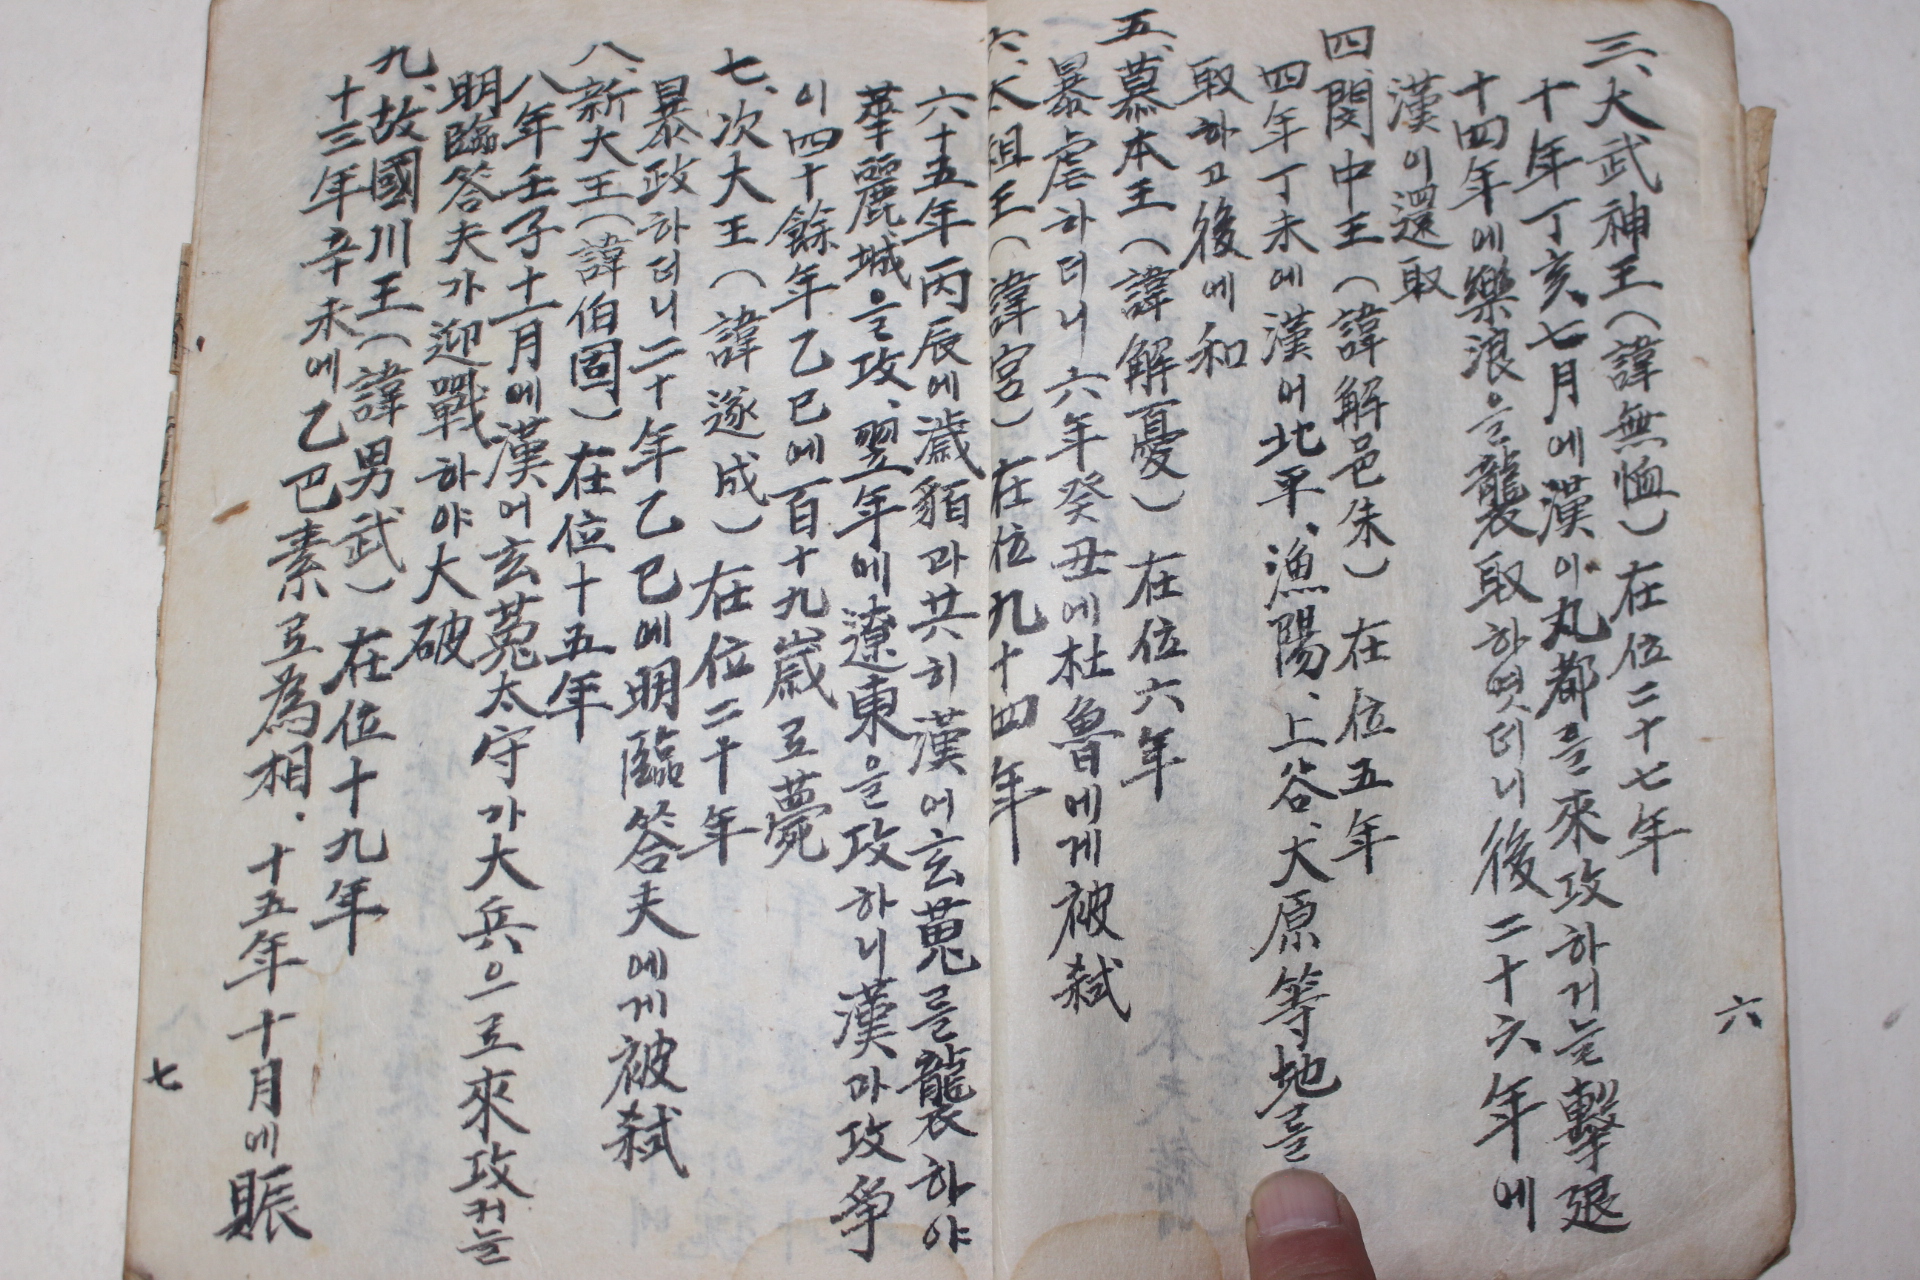 三、大武神王（諱無恤）在位二十七年
十年丁亥、七月에漢이丸都를來攻하거늘擊退
十四年에樂浪을襲取하엿더니後二十六年에
漢이還取
四、閔中王（諱解邑朱）在位五年
四年丁未에漢어北平、漁陽、上谷、太原等地를
取하고後에和
五、慕本王（諱解憂）在位六年
暴虐하더니六年癸丑에杜魯에게被弑
六、太祖王（諱宮）在位九十四年
六十五年丙辰에濊貊과共히漢에玄菟를襲하야
華麗城을攻、翌年에遼東을攻하니漢과攻爭
이四十餘年乙巳에百十九歲로薨
七、次大王（諱遂成）在位二十年
暴政하더니二十年乙巳에明臨答夫에게被弑
八、新大王（諱伯固）在位十五年
八年壬子十一月에漢어玄菟太守가大兵으로來攻커늘
明臨答夫가迎戰하야大破
九、故國川王（諱男武）在位十九年
十三年辛未에乙巴素로為相、十五年十月에賑
六
七